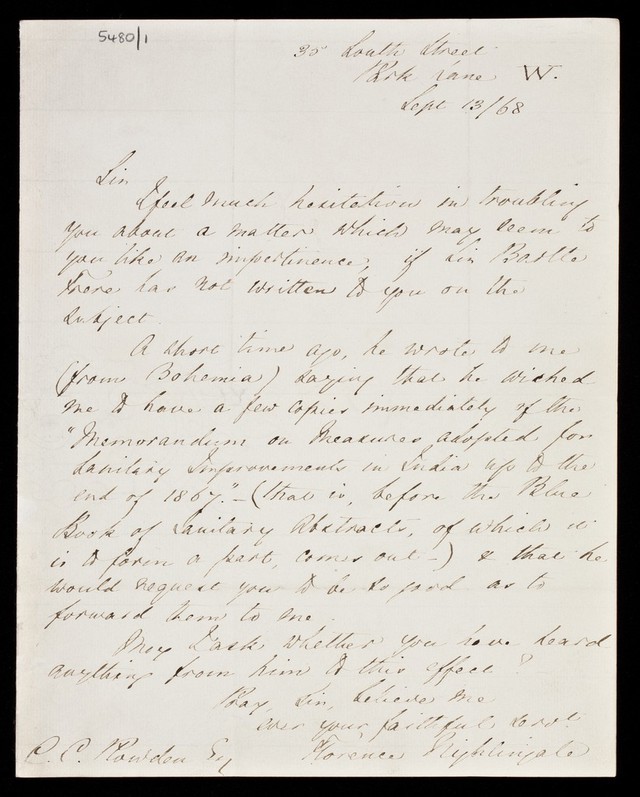 5480/1
35 South Street
Park Lane W.
Sept 13/68
Sir
I feel much hesitation in troubling
you about a matter which may seem to
you like an impertinence, if Sir Bartle
Frere has not written to you on the
subject.
A short time ago, he wrote to me
(from Bohemia) saying that he wished
me to have a few copies immediately of the
"Memorandum on Measures adopted for
Sanitary Improvements in India up to the
end of 1867." - (that is, before the Blue
Book of Sanitary Abstracts, of which it
is to form a part, comes out -) & that he
would request you to be so good as to
forward them to me.
May I ask whether you have heard
anything from him to this effect?
Pray, Sir, believe me
ever your faithful servt
Florence Nightingale
C. C. Plowden Esq